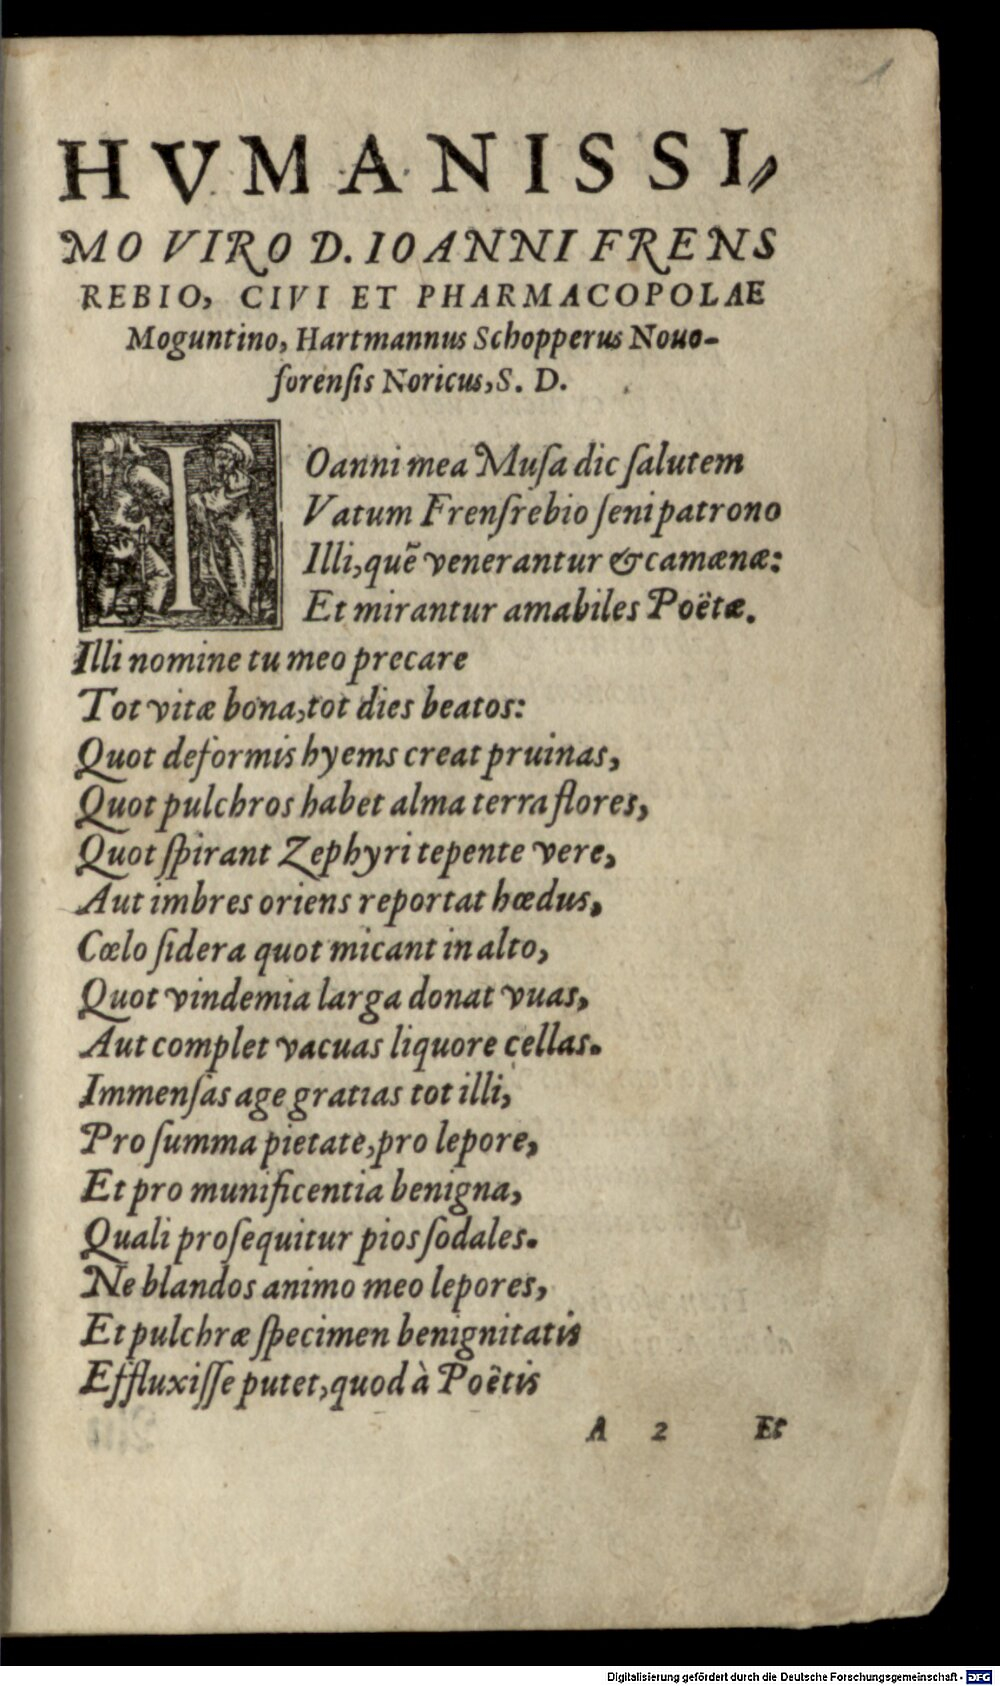 1
HVMANISSI,,
MO VIRO D. IOANNI FRENS
REBIO, CIVI ET PHARMACOPOLAE
Moguntino, Hartmannus Schopperus Nouo-
forenſis Noricus, S. D.
IOanni mea Muſa dic ſalutem
Vatum Frenſrebio ſeni patrono
Illi, quē venerantur & camœnæ:
Et mirantur amabiles Poëtæ.
Illi nomine tu meo precare
Tot vitæ bona, tot dies beatos:
Quot deformis hyems creat pruinas,
Quot pulchros habet alma terra flores,
Quot ſpirant Zephyri tepente vere,
Aut imbres oriens reportat hœdus,
Cœlo ſidera quot micant in alto,
Quot vindemia larga donat vuas,
Aut complet vacuas liquore cellas.
Immenſas age gratias tot illi,
Pro ſumma pietate, pro lepore,
Et pro munificentia benigna,
Quali proſequitur pios ſodales.
Ne blandos animo meo lepores,
Et pulchræ ſpecimen benignitatis
Effluxiſſe putet, quod à Poëtis
A 2 Et
Digitalisierung gefördert durch die Deutsche Forschungsgemeinschaft - DFG